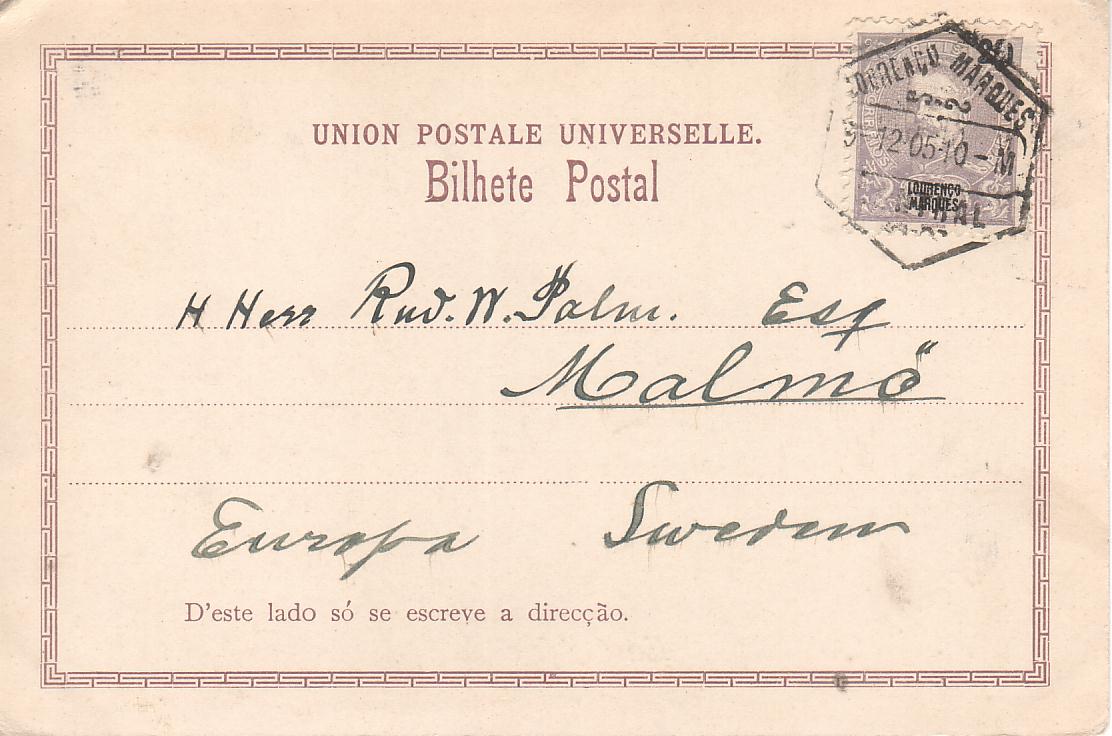 UNION POSTALE UNIVERSELLE.
Bilhete Postal
LOURENÇO MARQUES
12·05·10-M
CORREIOS
LOURENÇO
MARQUES
H Herr Rud. W. Palm. Esq
Malmö
Europa Sweden
D'este lado só se escreve a direcção.